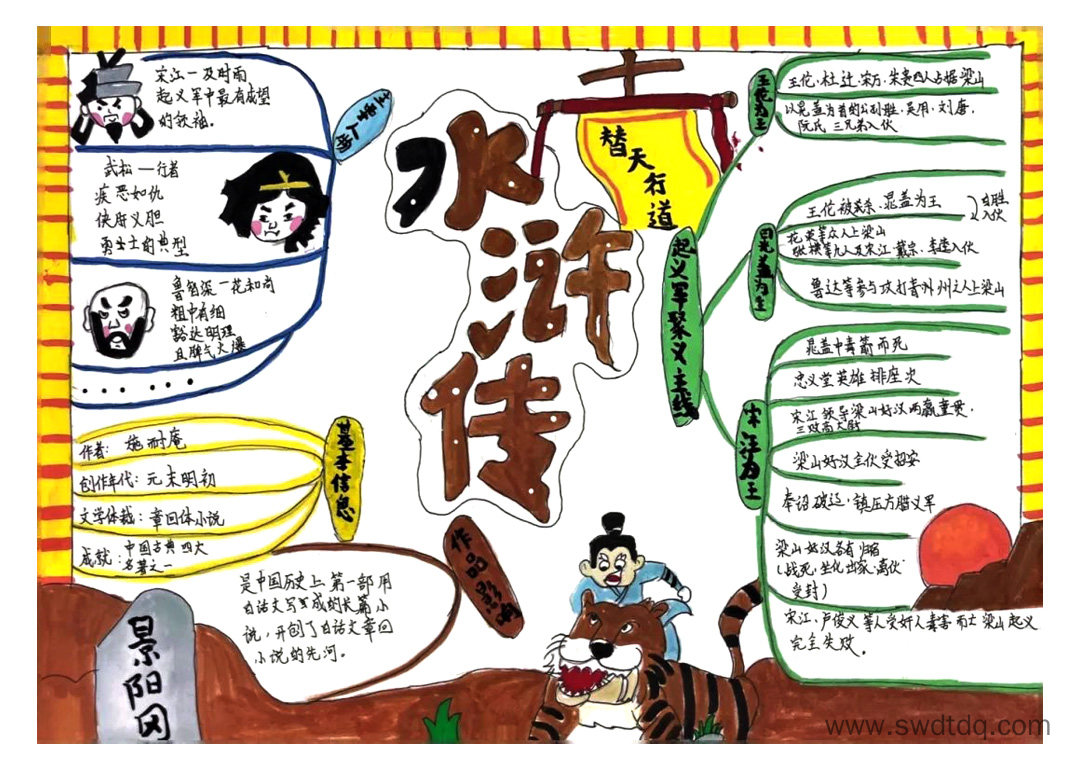 水浒传
替天行道
主要人物
宋江一及时雨
起义军中最有威望
的领袖。
武松一行者
疾恶如仇
侠肝义胆
勇士的典型
鲁智深一花和尚
粗中有细
豁达明理
且脾气火爆
......
基本信息
作者: 施耐庵
创作年代: 元末明初
文学体裁: 章回体小说
成就: 中国古典四大
名著之一
作品影响
是中国历史上第一部用
白话文写成的长篇小
说,开创了白话文章回
小说的先河。
景阳冈
起义军聚义主线
王伦为主
王伦、杜迁、宋万、朱贵四人占据梁山
以晁盖为首的公孙胜、吴用、刘唐、
阮氏三兄弟入伙
晁盖为主
王伦被杀,晁盖为王
花荣等众人上梁山
张横等九人及宋江、戴宗、李逵入伙
鲁达等参与攻打青州
之人上梁山
宋江为王
晁盖中毒箭而死
忠义堂英雄排座次
宋江领导梁山好汉两赢童贯,
三败高太尉
梁山好汉全伙受招安
奉诏破辽,镇压方腊义军
梁山好汉各有归宿
(战死、坐化出家、离伙
受封)
宋江、卢俊义等人受奸人毒害而亡梁山起义
完全失败。
www.swdtdq.com